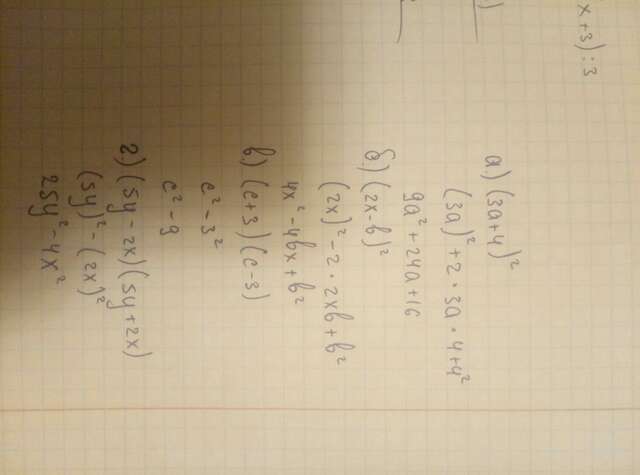 x+3):3
)
а) (3a+4)²
(3a)²+2·3a·4+4²
9a²+24a+16
б.) (2x-b)²
(2x)²-2·2xb+b²
4x²-4bx+b²
в.) (c+3)(c-3)
c²-3²
c²-9
г.) (5y-2x)(5y+2x)
(5y)²-(2x)²
25y²-4x²